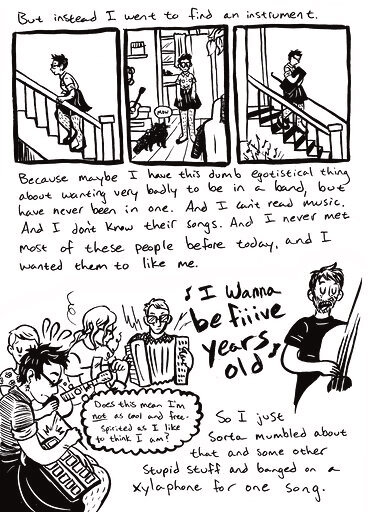 But instead I went to find an instrument.
MOW
Because maybe I have this dumb egotistical thing
about wanting very badly to be in a band, but
have never been in one. And I can't read music.
And I don't know their songs. And I never met
most of these people before today, and I
wanted them to like me.
I Wanna
be fiiive
years
old
Does this mean I'm
not as cool and free-
spirited as I like
to think I am?
So I just
sorta mumbled about
that and some other
stupid stuff and banged on a
xylaphone for one song.